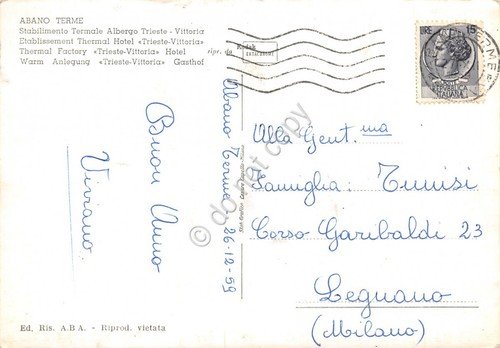 ABANO TERME
Stabilimento Termale Albergo Trieste - Vittoria
Etablissement Thermal Hotel «Trieste-Vittoria»
Thermal Factory «Trieste-Vittoria» Hotel
Warm Anlegung «Trieste-Vittoria» Gasthof
ripr. da
Kodak
LIRE 15
REPVBBLICA
ITALIANA
Buon Anno
Viviano.
Abano Terme, 26.12.59
Alla Gent.ma
Famiglia: Tunisi
Corso Garibaldi 23
Legnano
(Milano)
do not copy
Ed. Ris. A.B.A. - Riprod. vietata